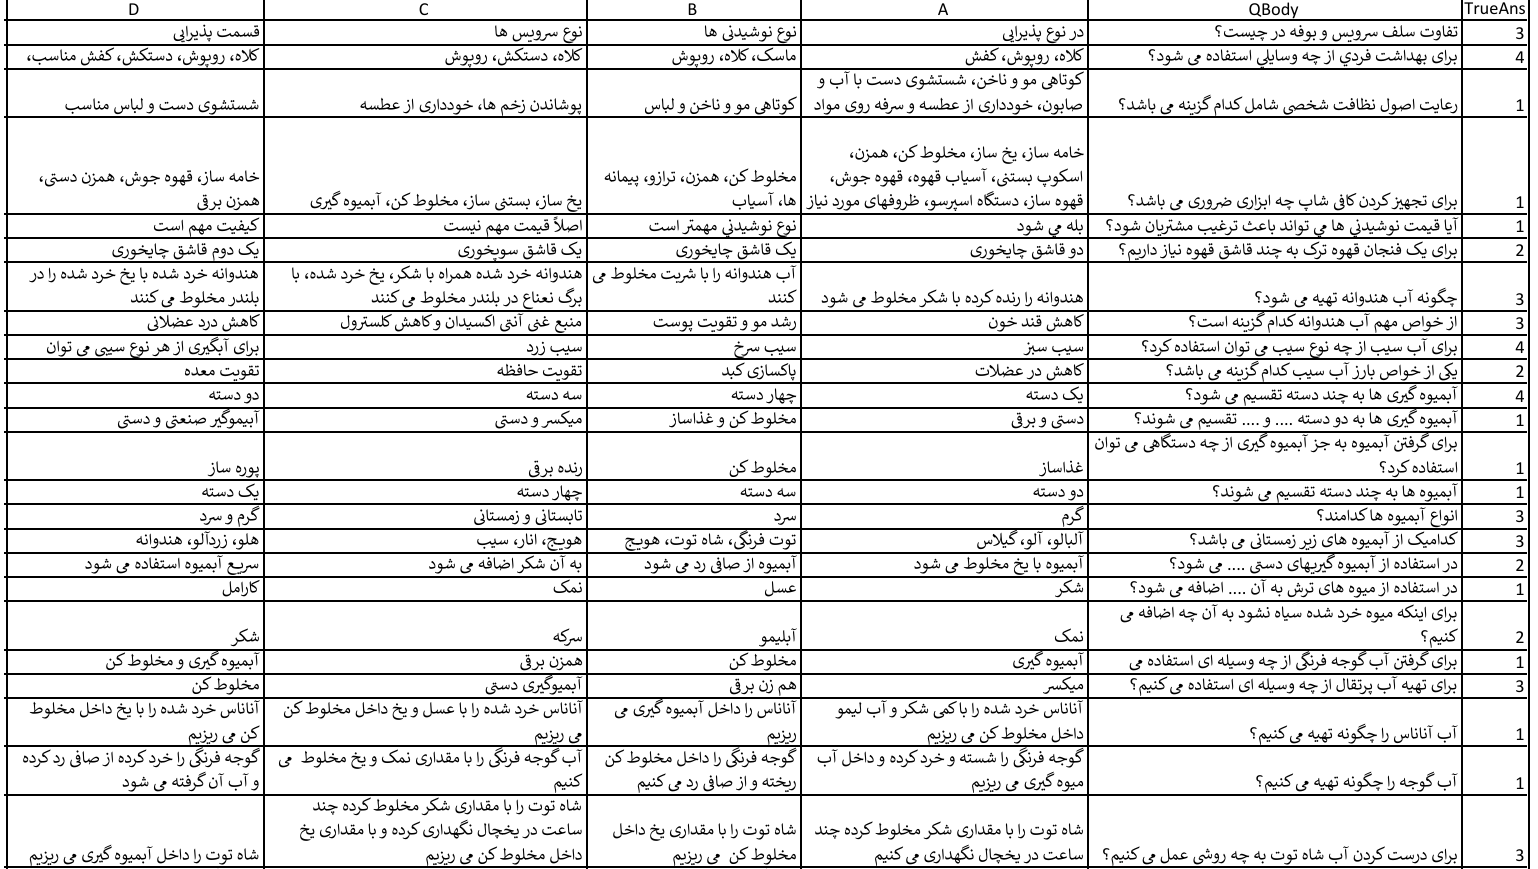 TrueAns QBody A B C D
3 تفاوت سلف سرویس و بوفه در چیست؟ در نوع پذیرایی نوع نوشیدنی ها نوع سرویس ها قسمت پذیرایی
4 برای بهداشت فردي از چه وسایلي استفاده می شود؟ کلاه، روپوش، کفش ماسک، کلاه، روپوش کلاه، دستکش، روپوش کلاه، روپوش، دستکش، کفش مناسب،
کوتاهی مو و ناخن، شستشوی دست با آب و
1 رعایت اصول نظافت شخصی شامل کدام گزینه می باشد؟ صابون، خودداری از عطسه و سرفه روی مواد کوتاهی مو و ناخن و لباس پوشاندن زخم ها، خودداری از عطسه شستشوی دست و لباس مناسب
خامه ساز، یخ ساز، مخلوط کن، همزن،
اسکوپ بستنی، آسیاب قهوه، قهوه جوش، مخلوط کن، همزن، ترازو، پیمانه خامه ساز، قهوه جوش، همزن دستی،
1 برای تجهیز کردن کافی شاپ چه ابزاری ضروری می باشد؟ قهوه ساز، دستگاه اسپرسو، ظروفهای مورد نیاز ها، آسیاب یخ ساز، بستنی ساز، مخلوط کن، آبمیوه گیری همزن برقی
1 آیا قیمت نوشیدني ها مي تواند باعث ترغیب مشتریان شود؟ بله مي شود نوع نوشیدني مهمتر است اصلاً قیمت مهم نیست کیفیت مهم است
2 برای یک فنجان قهوه ترک به چند قاشق قهوه نیاز داریم؟ دو قاشق چایخوری یک قاشق چایخوری یک قاشق سوپخوری یک دوم قاشق چایخوری
آب هندوانه را با شربت مخلوط می هندوانه خرد شده همراه با شکر، یخ خرد شده، با هندوانه خرد شده با یخ خرد شده را در
3 چگونه آب هندوانه تهیه می شود؟ هندوانه را رنده کرده با شکر مخلوط می شود کنند برگ نعناع در بلندر مخلوط می کنند بلندر مخلوط می کنند
3 از خواص مهم آب هندوانه کدام گزینه است؟ کاهش قند خون رشد مو و تقویت پوست منبع غنی آنتی اکسیدان و کاهش کلسترول کاهش درد عضلانی
4 برای آب سیب از چه نوع سیب می توان استفاده کرد؟ سیب سبز سیب سرخ سیب زرد برای آبگیری از هر نوع سیبی می توان
2 یکی از خواص بارز آب سیب کدام گزینه می باشد؟ کاهش در عضلات پاکسازی کبد تقویت حافظه تقویت معده
4 آبمیوه گیری ها به چند دسته تقسیم می شود؟ یک دسته چهار دسته سه دسته دو دسته
1 آبمیوه گیری ها به دو دسته .... و .... تقسیم می شوند؟ دستی و برقی مخلوط کن و غذاساز میکسر و دستی آبیموگیر صنعتی و دستی
برای گرفتن آبمیوه به جز آبمیوه گیری از چه دستگاهی می توان
1 استفاده کرد؟ غذاساز مخلوط کن رنده برقی پوره ساز
1 آبمیوه ها به چند دسته تقسیم می شوند؟ دو دسته سه دسته چهار دسته یک دسته
3 انواع آبمیوه ها کدامند؟ گرم سرد تابستانی و زمستانی گرم و سرد
3 کدامیک از آبمیوه های زیر زمستانی می باشد؟ آلبالو، آلو، گیلاس توت فرنگی، شاه توت، هویج هویج، انار، سیب هلو، زردآلو، هندوانه
2 در استفاده از آبمیوه گیریهای دستی .... می شود؟ آبمیوه با یخ مخلوط می شود آبمیوه از صافی رد می شود به آن شکر اضافه می شود سریع آبمیوه استفاده می شود
1 در استفاده از میوه های ترش به آن .... اضافه می شود؟ شکر عسل نمک کارامل
برای اینکه میوه خرد شده سیاه نشود به آن چه اضافه می
2 کنیم؟ نمک آبلیمو سرکه شکر
1 برای گرفتن آب گوجه فرنگی از چه وسیله ای استفاده می آبمیوه گیری مخلوط کن همزن برقی آبمیوه گیری و مخلوط کن
3 برای تهیه آب پرتقال از چه وسیله ای استفاده می کنیم؟ میکسر هم زن برقی آبمیوگیری دستی مخلوط کن
آناناس خرد شده را با کمی شکر و آب لیمو آناناس را داخل آبمیوه گیری می آناناس خرد شده را با عسل و یخ داخل مخلوط کن آناناس خرد شده را با یخ داخل مخلوط
1 آب آناناس را چگونه تهیه می کنیم؟ داخل مخلوط کن می ریزیم ریزیم می ریزیم کن می ریزیم
گوجه فرنگی را شسته و خرد کرده و داخل آب گوجه فرنگی را داخل مخلوط کن آب گوجه فرنگی را با مقداری نمک و یخ مخلوط می گوجه فرنگی را خرد کرده از صافی رد کرده
1 آب گوجه را چگونه تهیه می کنیم؟ میوه گیری می ریزیم ریخته و از صافی رد می کنیم کنیم و آب آن گرفته می شود
شاه توت را با مقداری شکر مخلوط کرده چند
شاه توت را با مقداری شکر مخلوط کرده چند شاه توت را با مقداری یخ داخل ساعت در یخچال نگهداری کرده و با مقداری یخ
3 برای درست کردن آب شاه توت به چه روشی عمل می کنیم؟ ساعت در یخچال نگهداری می کنیم مخلوط کن می ریزیم داخل مخلوط کن می ریزیم شاه توت را داخل آبمیوه گیری می ریزیم